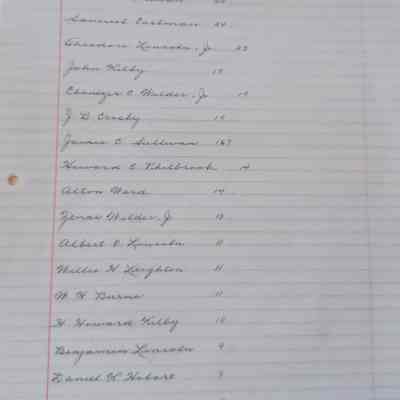 Samuel Eastman 24
Theodore Lincoln, Jr 23
John Kilby 19
Ebenezer C Wilder, Jr 19
J D Crosby 19
James C Sullivan 16?
Howard C Philbrook 14
Alton Ward 14
Zenas Wilder, Jr 13
Albert E Lincoln 11
Willie H Leighton 11
W. H. Burns 11
H. Howard Kilby 10
Benjamin Lincoln 9
Daniel K Hobart 9